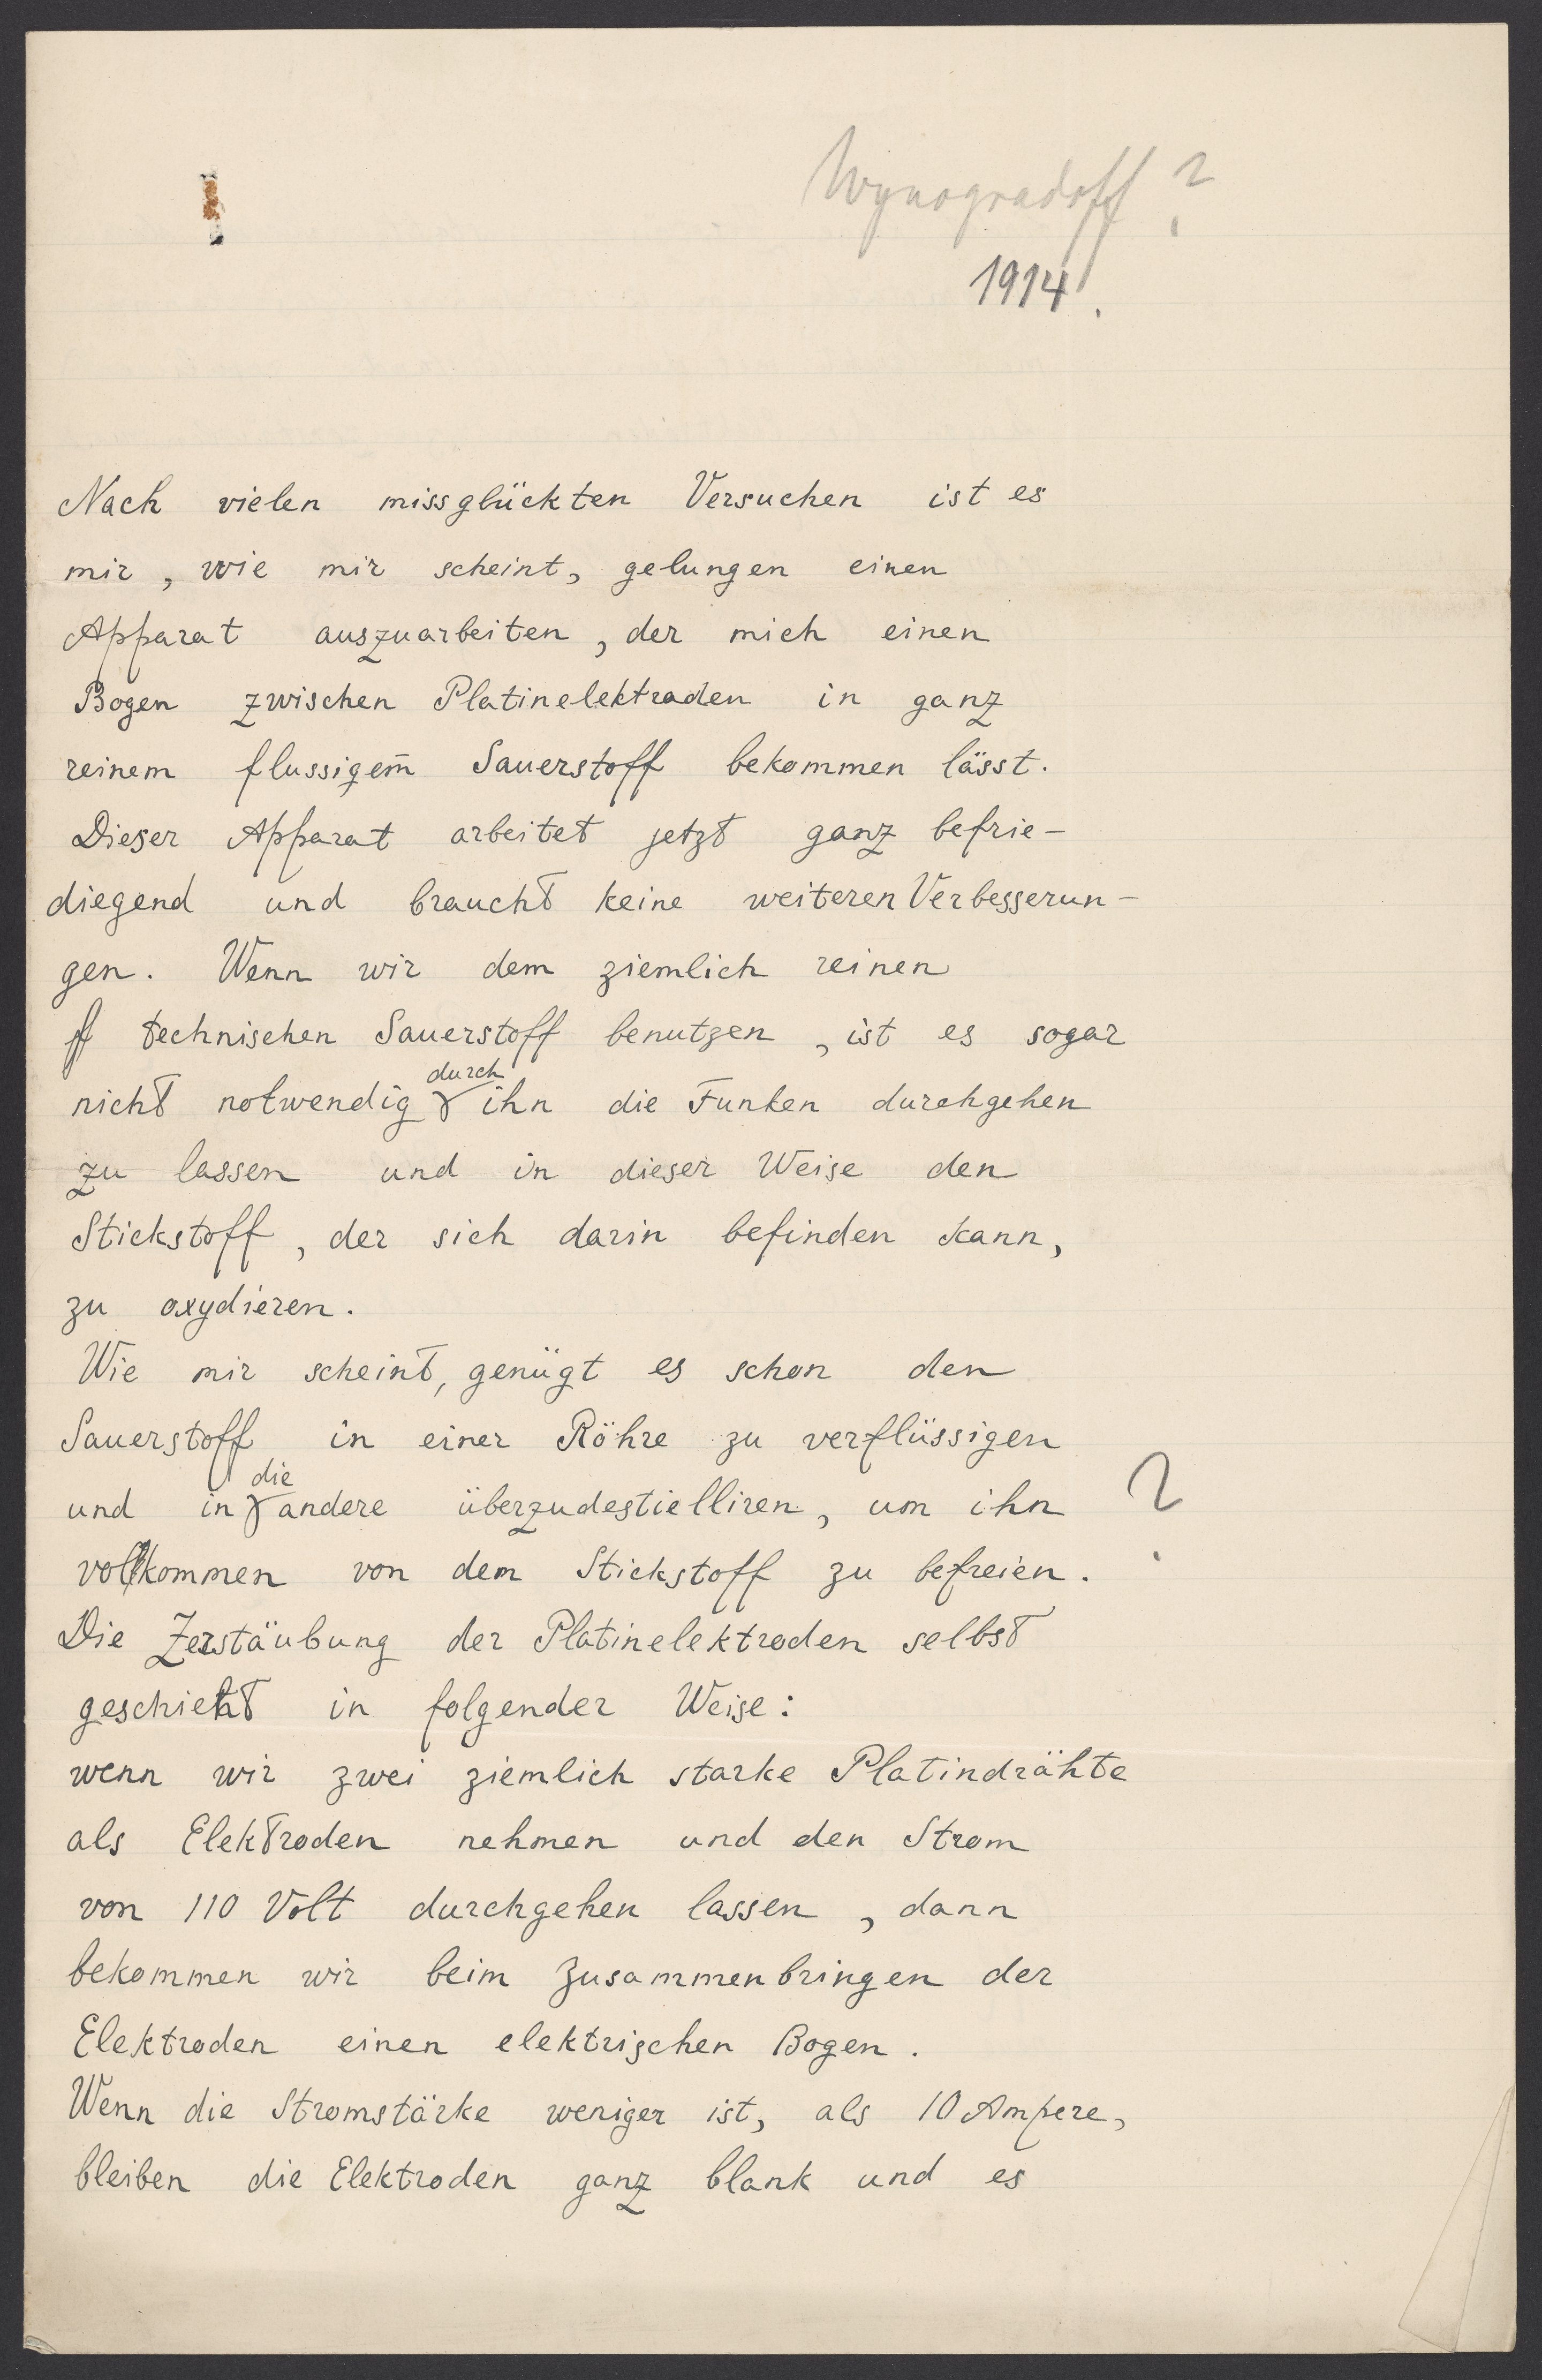 Wynogradoff ?
1914.
Nach vielen missglückten Versuchen ist es
mir, wie mir scheint, gelungen einen
Apparat auszuarbeiten, der mich einen
Bogen zwischen Platinelektroden in ganz
reinem flussigem Sauerstoff bekommen lässt.
Dieser Apparat arbeitet jetzt ganz befrie-
diegend und braucht keine weiteren Verbesserun-
gen. Wenn wir dem ziemlich reinen
technischen Sauerstoff benutzen, ist es sogar
nicht notwendig durch ihn die Funken durchgehen
zu lassen und in dieser Weise den
Stickstoff, der sich darin befinden kann,
zu oxydieren.
Wie mir scheint, genügt es schon den
Sauerstoff in einer Röhre zu verflüssigen
und in die andere überzudestielliren, um ihn ?
vollkommen von dem Stickstoff zu befreien.
Die Zerstäubung der Platinelektroden selbst
geschieht in folgender Weise:
wenn wir zwei ziemlich starke Platindrähte
als Elektroden nehmen und den Strom
von 110 Volt durchgehen lassen, dann
bekommen wir beim Zusammenbringen der
Elektroden einen elektrischen Bogen.
Wenn die Stromstärke weniger ist, als 10 Ampere,
bleiben die Elektroden ganz blank und es